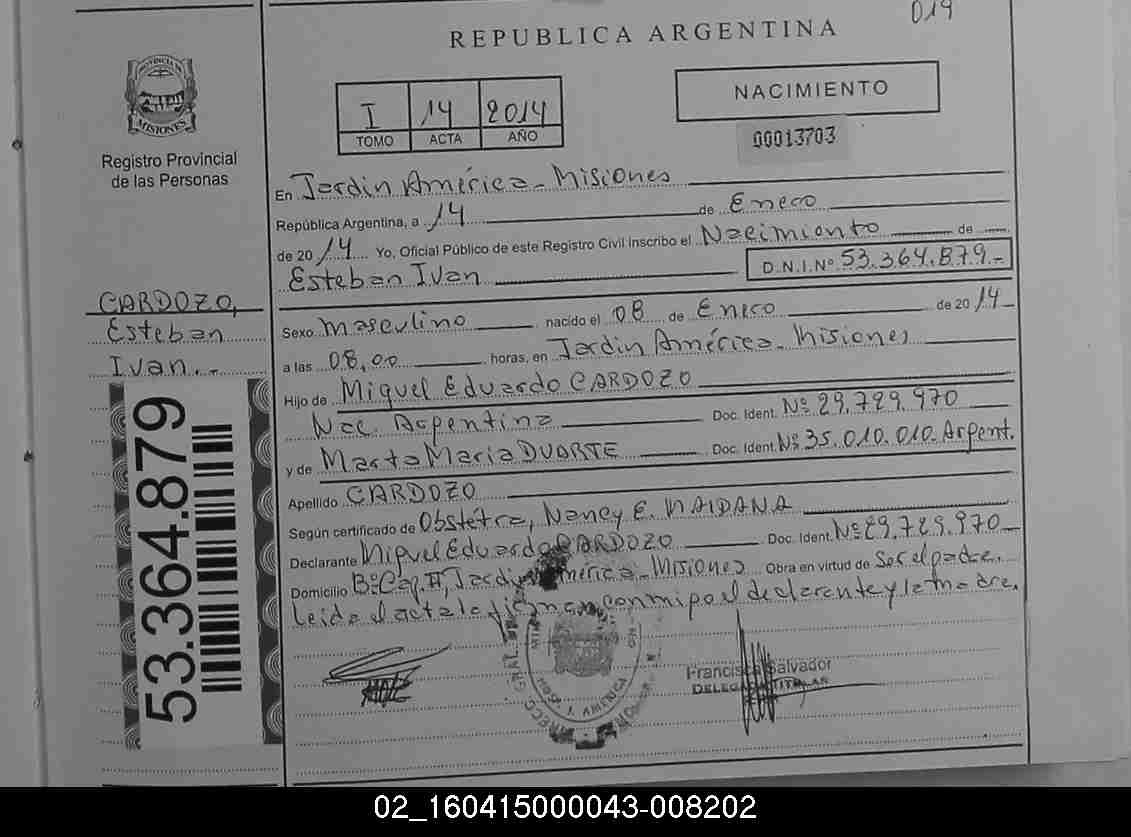 019
REPUBLICA ARGENTINA
PROVINCIA DE
MISIONES
Registro Provincial
de las Personas
I 14 2014
TOMO ACTA AÑO
NACIMIENTO
00013703
En Jardin América - Misiones
República Argentina, a 14 de Enero
de 2014 Yo, Oficial Público de este Registro Civil Inscribo el Nacimiento de
Esteban Ivan D.N.I.Nº 53.364.879.-
CARDOZO,
Esteban
Ivan.-
Sexo masculino nacido el 08 de Enero de 2014
a las 08,00 horas, en Jardin América - Misiones
Hijo de Miguel Eduardo CARDOZO
Nac. Argentina Doc. Ident. Nº 29.729.970
y de Marta Maria DUARTE Doc. Ident. Nº 35.010.010. Argent.
Apellido CARDOZO
Según certificado de Obstétra, Nancy E. MAIDANA
Declarante Miguel Eduardo CARDOZO Doc. Ident. Nº 29.729.970
Domicilio Bº Cap. II, Jardin América - Misiones Obra en virtud de Ser el padre.
Leida el acta la firman conmigo el declarante y la madre.
53.364.879
AMERICA
Francisca Salvador
DELEGADA TITULAR
02_160415000043-008202